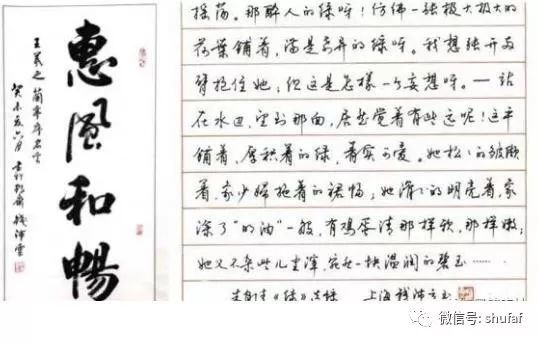 惠風和暢
王羲之 蘭亭序名言
錢沛雲
摇荡。那醉人的绿呀！仿佛一张极大极大的
荷叶铺着，满是奇异的绿呀。我想张开两
臂抱住她；但这是怎样一个妄想呀。——站
在水边，望到那面，居然觉着有些远呢！这平
铺着，厚积着的绿，着实可爱。她松々的皱缬
着，象少妇拖着的裙幅；她滑々的明亮着，象
涂了“明油”一般，有鸡蛋清那样软，那样嫩；
她又不杂些儿尘滓，宛然一块温润的碧玉……
朱自清《绿》选录 上海钱沛云书
微信号: shufaf